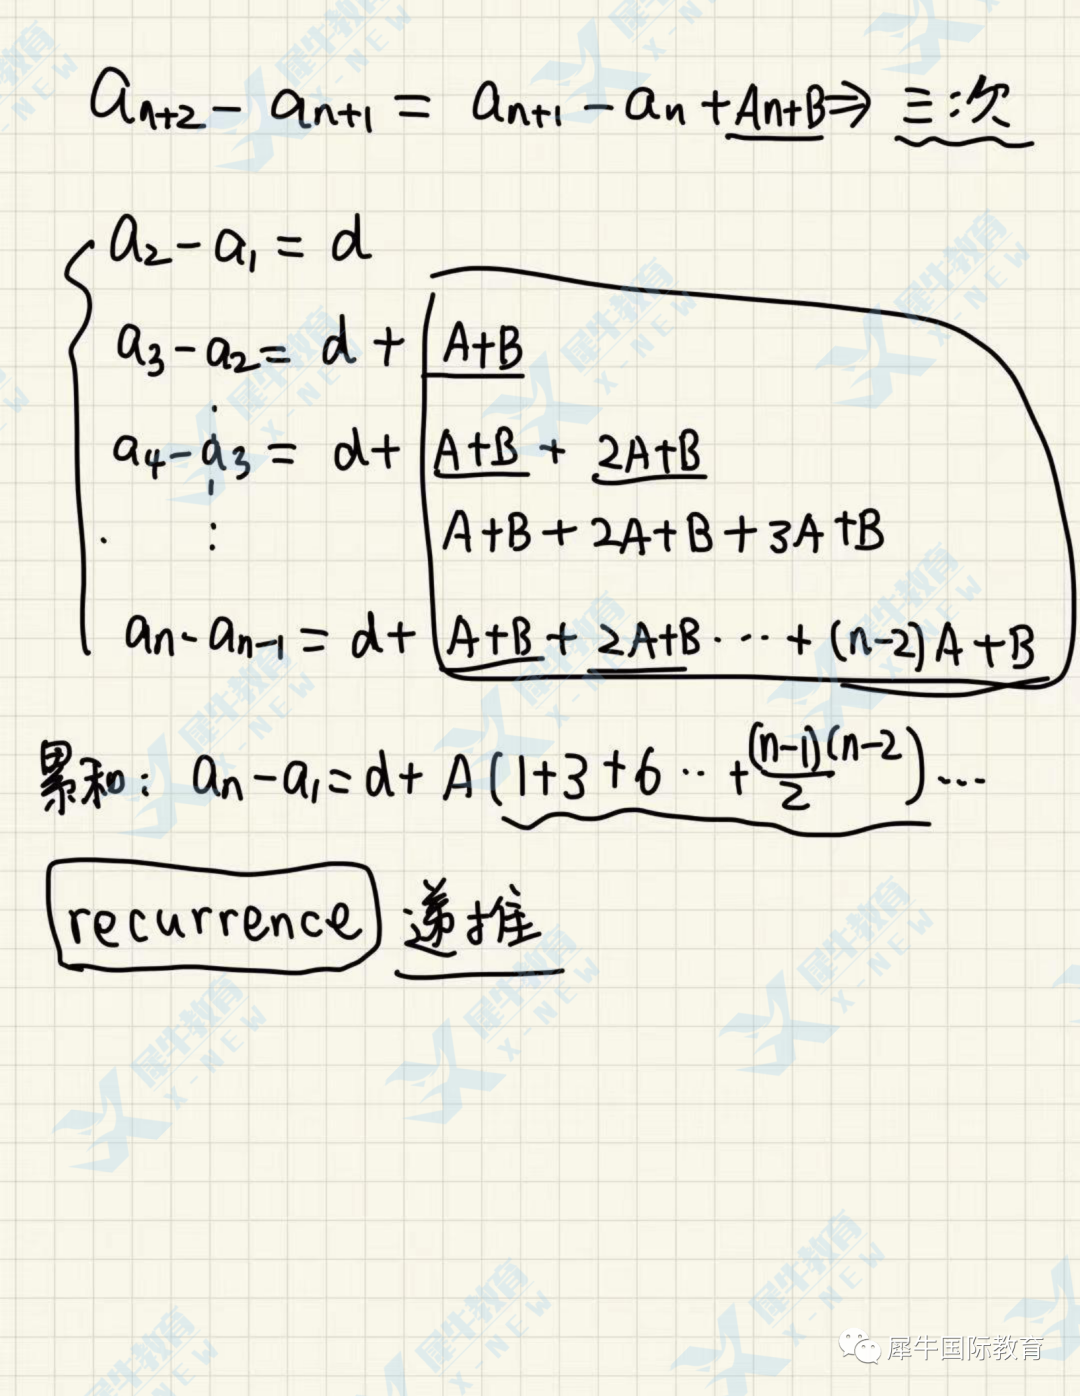 a_{n+2} - a_{n+1} = a_{n+1} - a_n + An+B ⇒ 三次
a_2 - a_1 = d
a_3 - a_2 = d + A+B
a_4 - a_3 = d + A+B + 2A+B
A+B + 2A+B + 3A+B
a_n - a_{n-1} = d + A+B + 2A+B ··· + (n-2)A+B
累和: a_n - a_1 = d + A(1+3+6 ·· + (n-1)(n-2)/2) ···
recurrence 递推
犀牛国际教育
犀牛教育
X-NEW